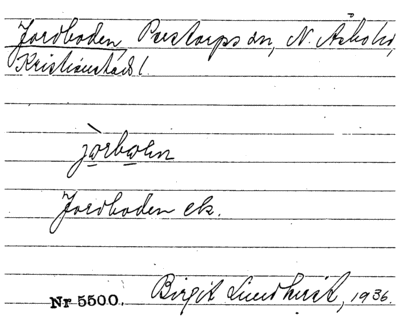 Jordboden Perstorps sn, N. Åsbo hd,
Kristianstads l.
jòrboͅn
Jordboden ek.
Nr 5500. Birgit Lindkvist, 1936.